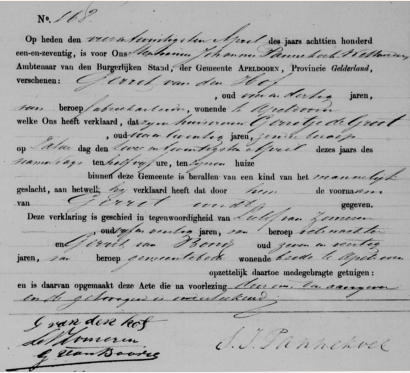 No. 168.
Op heden den vier en twintigsten April des jaars achttien honderd
een-en-zeventig, is voor Ons Johannes Pannekoek
Ambtenaar van den Burgerlijken Stand, der Gemeente APELDOORN, Provincie Gelderland,
verschenen: Gerrit van den Hof
, oud en dertig jaren,
van beroep fabriekarbeider, wonende te Apeldoorn
welke Ons heeft verklaard, dat zijn huisvrouw Gerritje de Groot
, oud twintig jaren, zonder beroep
op den twee en twintigsten April dezes jaars des
namiddags ten half vijf ure, ten zijnen huize
binnen deze Gemeente is bevallen van een kind van het mannelijk
geslacht, aan hetwelk hij verklaard heeft dat door hem de voornaam
van Gerrit wordt gegeven.
Deze verklaring is geschied in tegenwoordigheid van van Zomeren
oud en veertig jaren, van beroep veldwachter
en Gerrit van oud zeven en veertig
jaren, van beroep gemeentebode wonende beide te Apeldoorn
opzettelijk daartoe medegebragte getuigen:
en is daarvan opgemaakt deze Acte die na voorlezing door ons, den aangever
en de getuigen is onderteekend.
G van den hof
van Zomeren
G van
J. J. Pannekoek